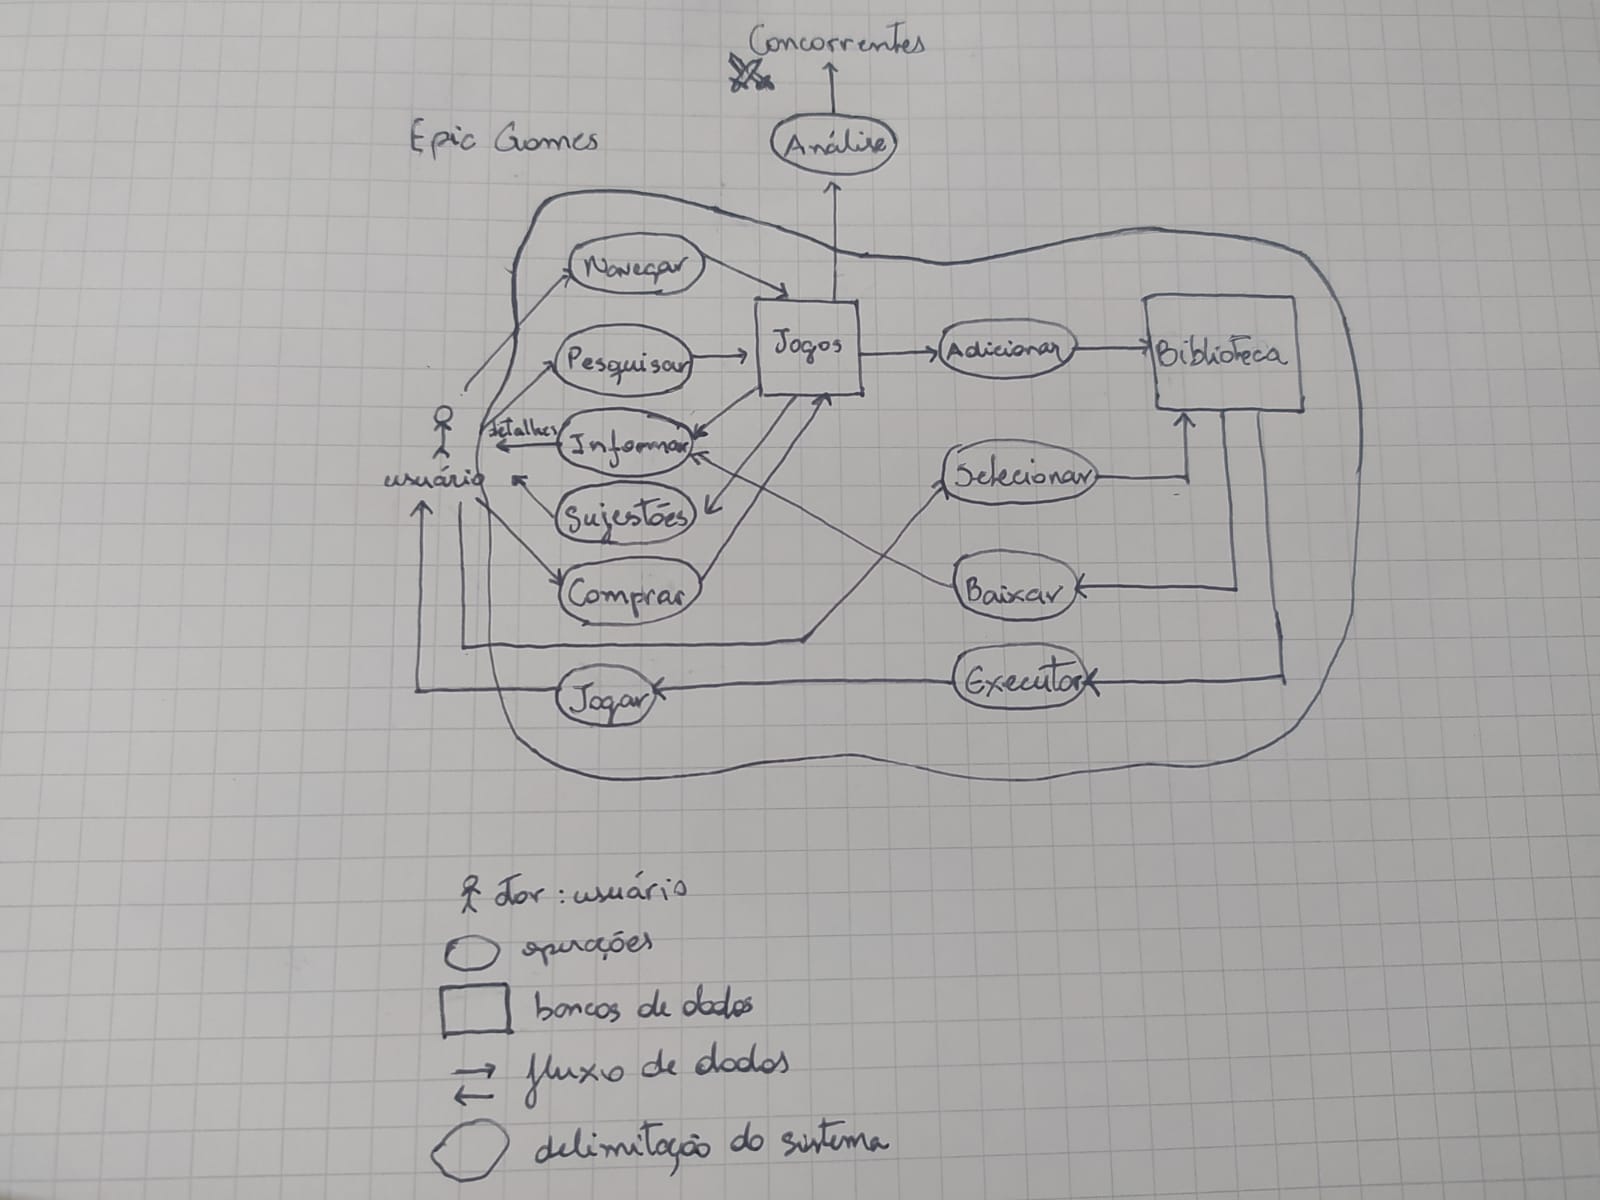 Concorrentes
Epic Games
Análise
Navegar
Jogos
Adicionar
Biblioteca
Pesquisar
detalhes
Informar
usuário
Selecionar
Sujestões
Comprar
Baixar
Executar
Jogar
ator : usuário
operações
bancos de dados
fluxo de dados
delimitação do sistema